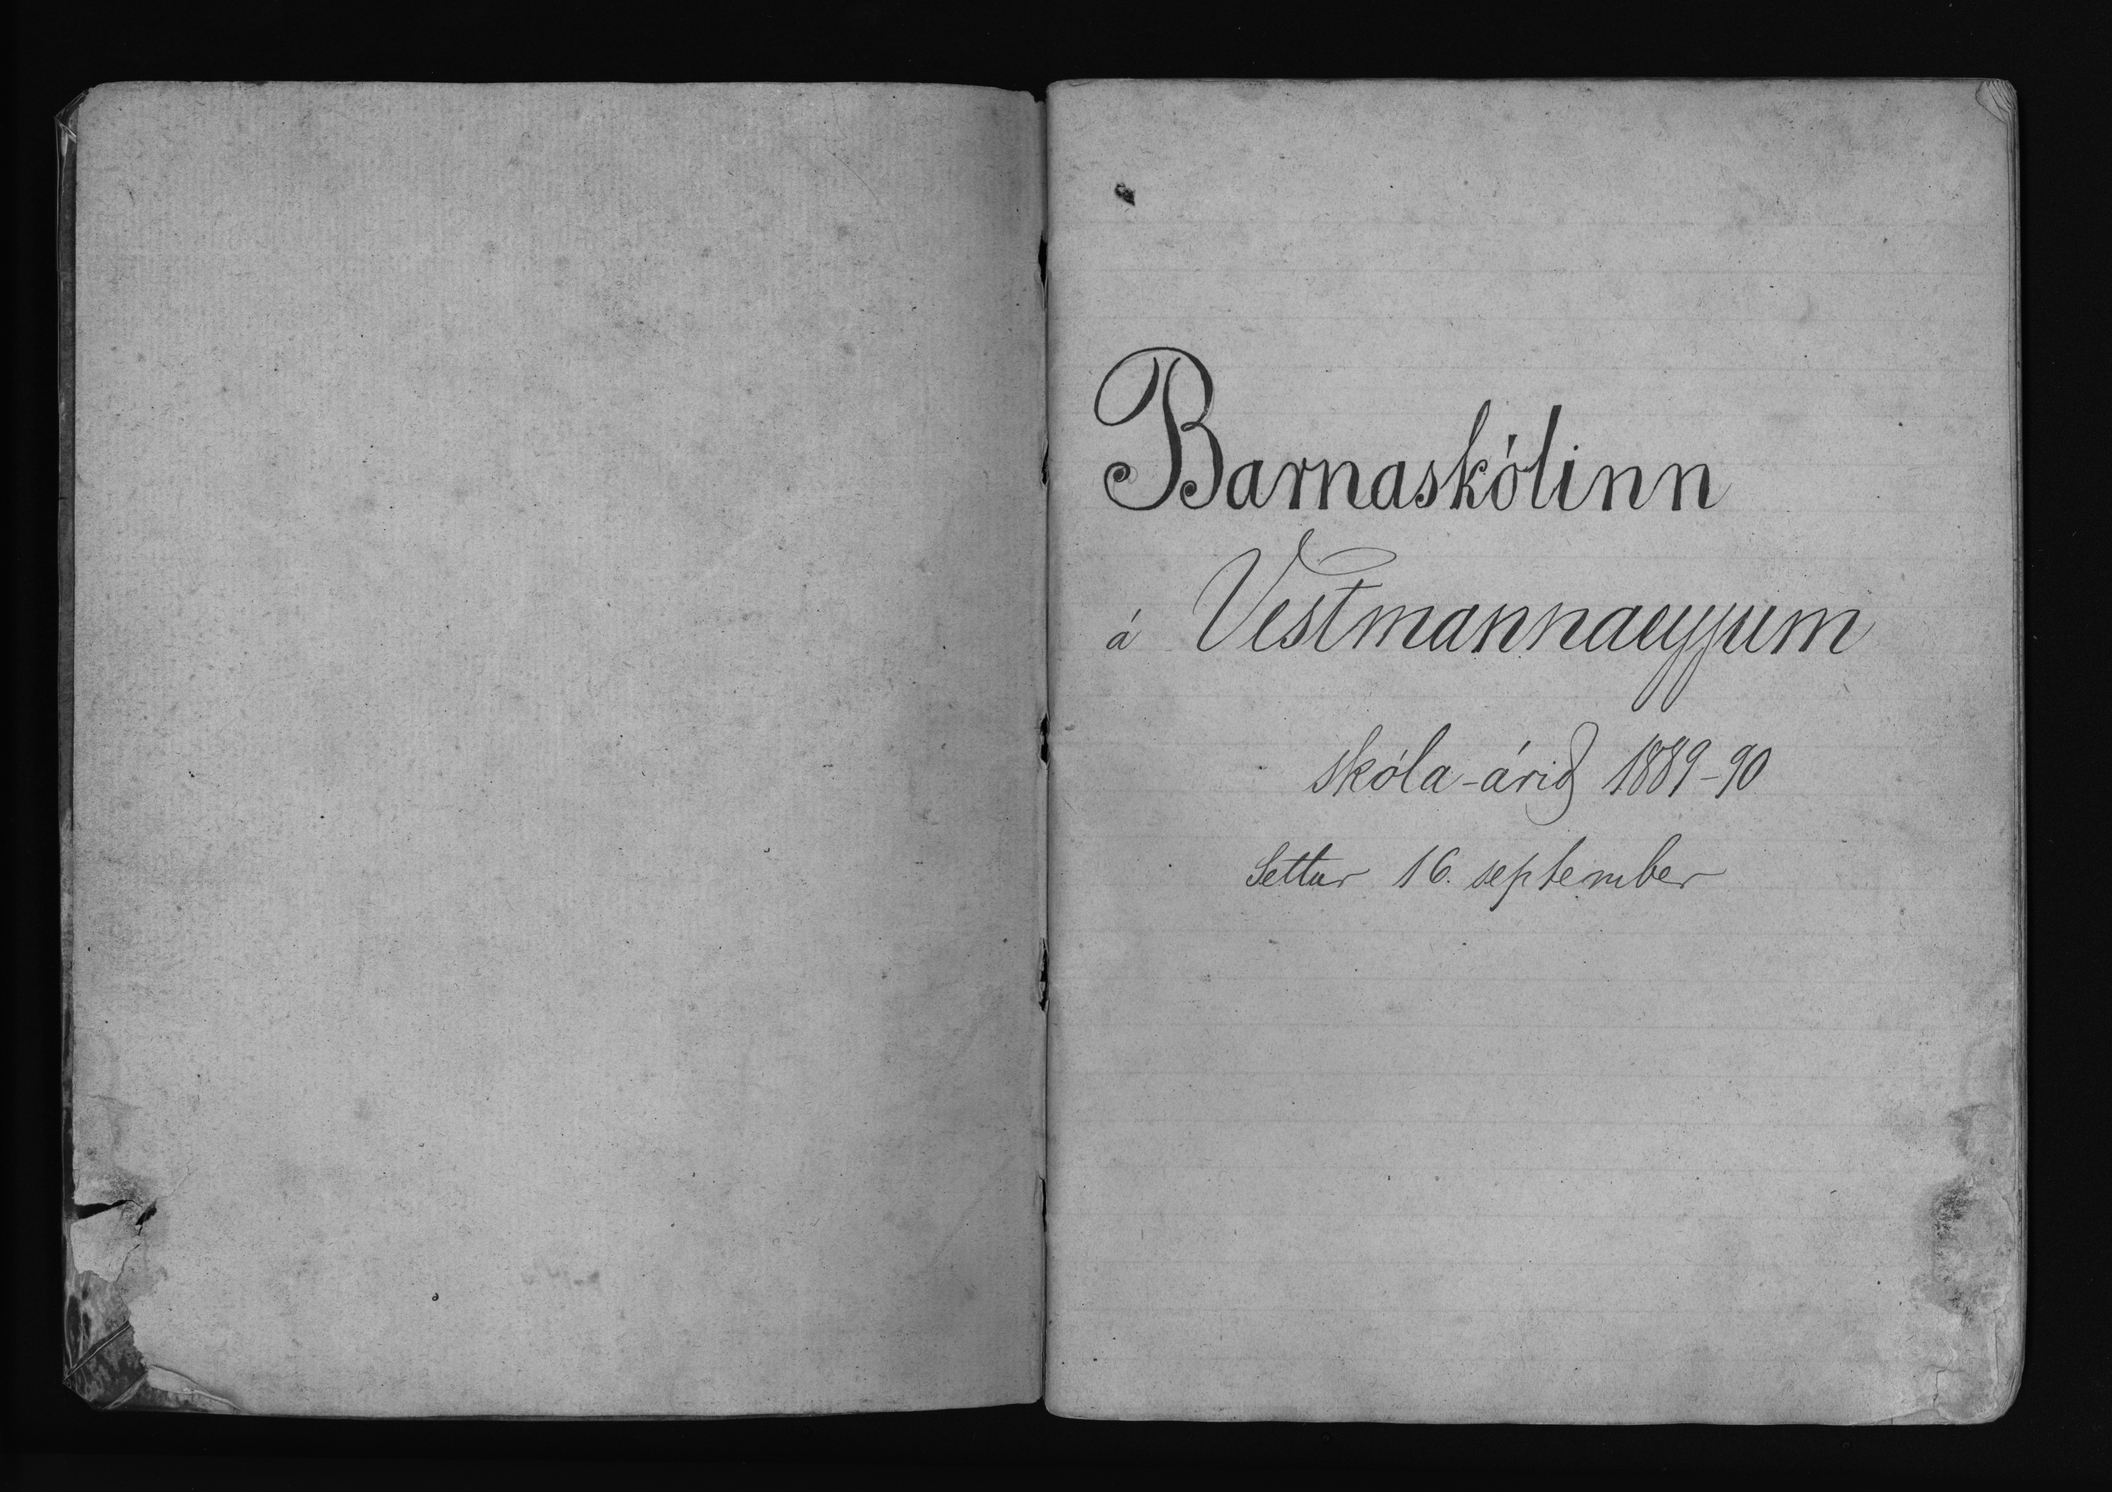 Barnaskólinn
á Vestmannaeyjum
skóla-árið 1889-90
Settur 16. september